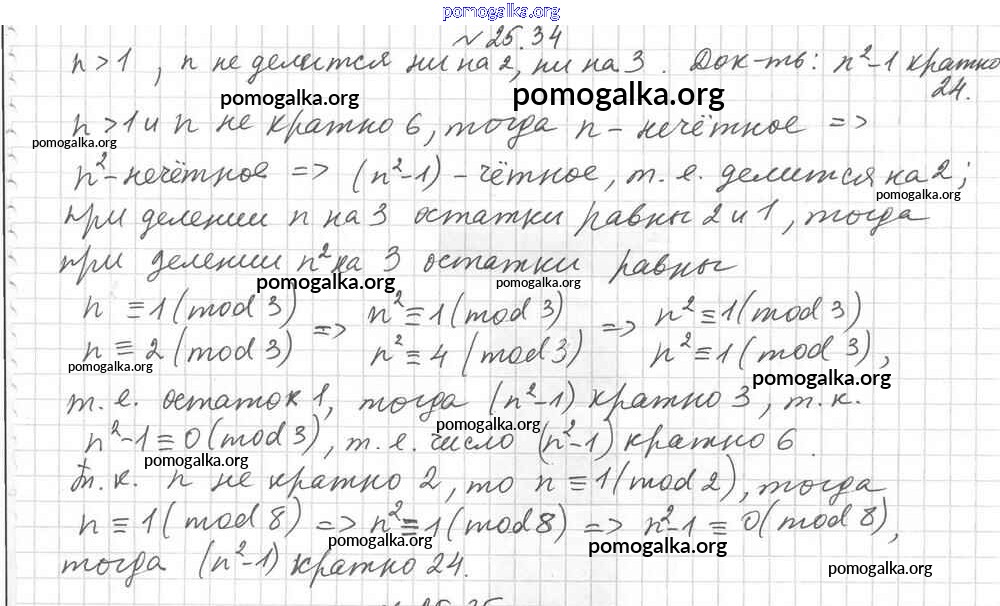 pomogalka.org
№25.34
n>1, n не делится ни на 2, ни на 3. Док-ть: n²-1 кратно
24.
pomogalka.org
pomogalka.org
n>1 и n не кратно 6, тогда n - нечётное =>
pomogalka.org
n²-нечётное => (n²-1) - чётное, т. е. делится на 2;
pomogalka.org
при делении n на 3 остатки равны 2 и 1, тогда
при делении n² на 3 остатки равны
pomogalka.org
pomogalka.org
n ≡ 1 (mod 3) => n² ≡ 1 (mod 3) => n² ≡ 1 (mod 3)
n ≡ 2 (mod 3) n² ≡ 4 (mod 3) n² ≡ 1 (mod 3),
pomogalka.org
pomogalka.org
т. е. остаток 1, тогда (n²-1) кратно 3, т. к.
pomogalka.org
n²-1 ≡ 0 (mod 3), т. е. число (n²-1) кратно 6
pomogalka.org
т. к. n не кратно 2, то n ≡ 1 (mod 2), тогда
n ≡ 1 (mod 8) => n² ≡ 1 (mod 8) => n²-1 ≡ 0 (mod 8),
pomogalka.org
pomogalka.org
тогда (n²-1) кратно 24.
pomogalka.org